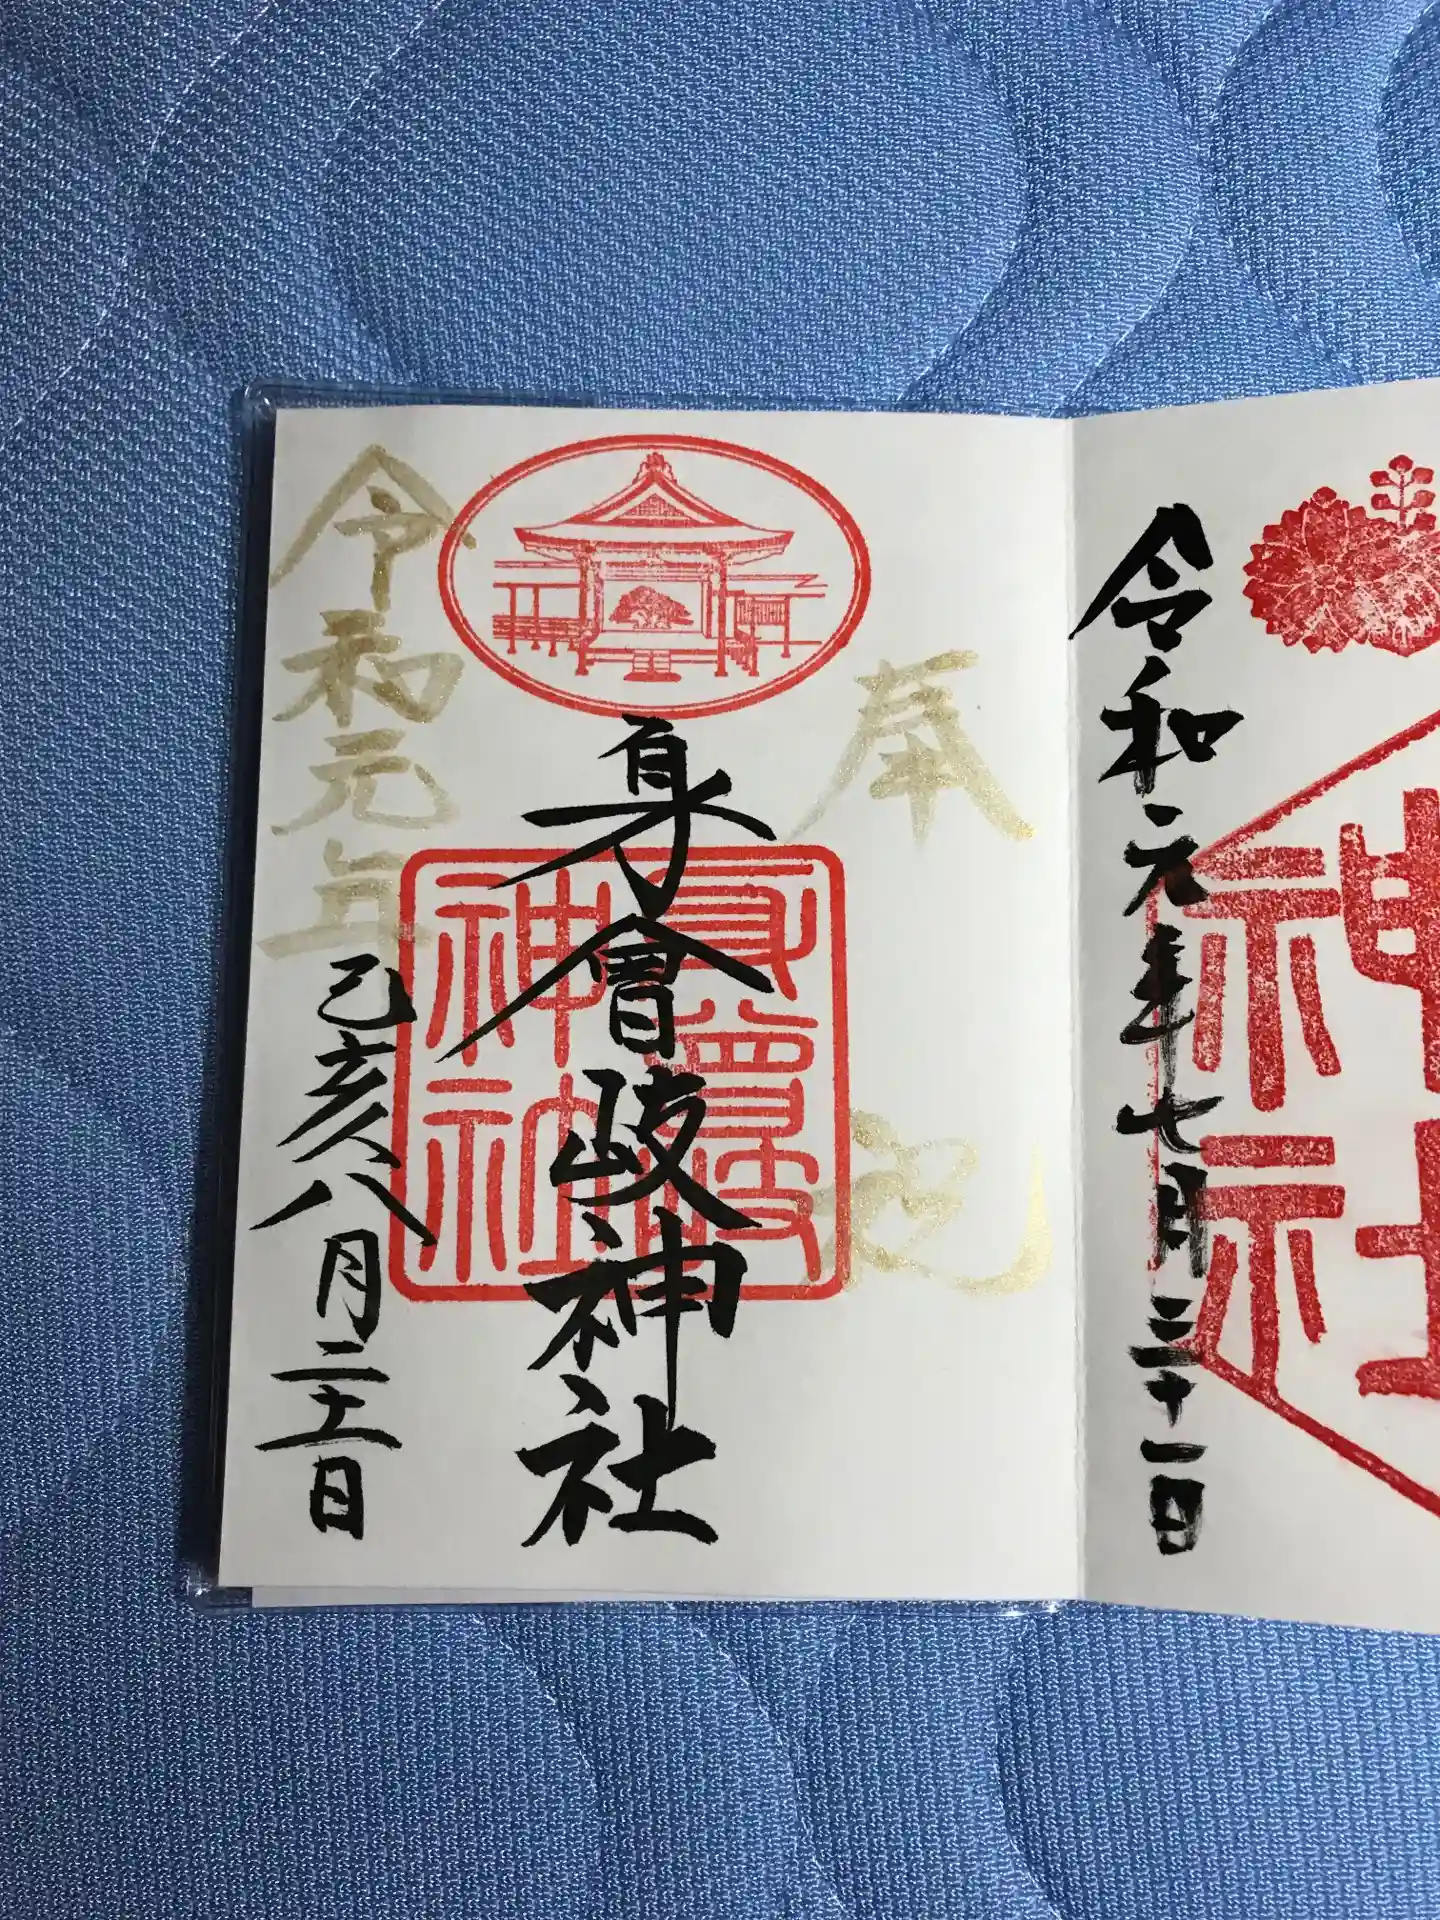 令和元年七月三十一日
神社
奉祝
身曾岐神社
身曾岐神社
令和元年
己亥八月二十一日